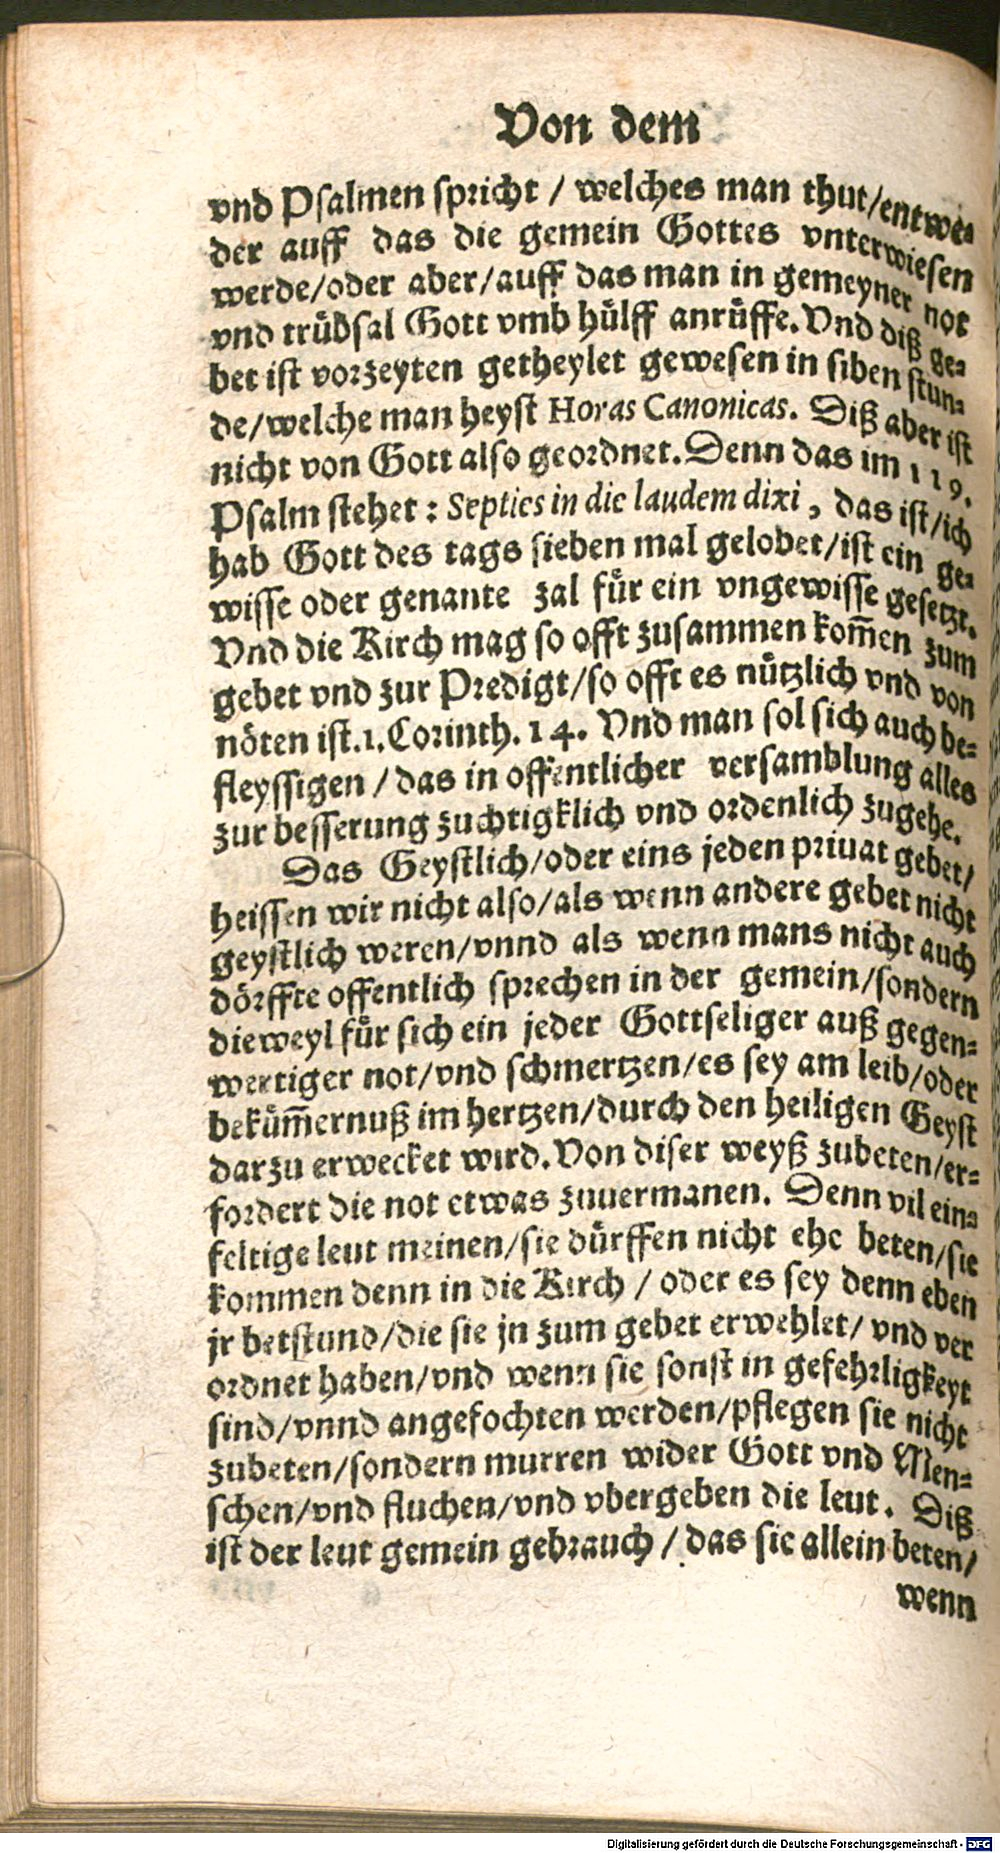 Von dem
vnd Psalmen spricht / welches man thut/entwe-
der auff das die gemein Gottes vnterwiesen
werde/oder aber/auff das man in gemeyner not
vnd trübsal Gott vmb hülff anrüffe. Vnd diß ge-
bet ist vorzeyten getheylet gewesen in siben stun-
de/welche man heyst Horas Canonicas. Diß aber ist
nicht von Gott also geordnet. Denn das im 119.
Psalm stehet : Septies in die laudem dixi, das ist/ich
hab Gott des tags sieben mal gelobet/ist ein ge-
wisse oder genante zal für ein vngewisse gesetzt.
Vnd die Kirch mag so offt zusammen kom̃en zum
gebet vnd zur Predigt/so offt es nützlich vnd von
nöten ist. 1. Corinth. 14. Vnd man sol sich auch be-
fleyssigen / das in offentlicher versamblung alles
zur besserung zuchtigklich vnd ordenlich zugehe.
Das Geystlich/oder eins jeden priuat gebet/
heissen wir nicht also/als wenn andere gebet nicht
geystlich weren/vnnd als wenn mans nicht auch
dörffte offentlich sprechen in der gemein/sondern
dieweyl für sich ein jeder Gottseliger auß gegen-
wertiger not/vnd schmertzen/es sey am leib/oder
beküm̃ernuß im hertzen/durch den heiligen Geyst
darzu erwecket wird. Von diser weyß zubeten/er-
fordert die not etwas zuuermanen. Denn vil ein-
feltige leut meinen/sie dürffen nicht ehe beten/sie
kommen denn in die Kirch / oder es sey denn eben
jr betstund/die sie jn zum gebet erwehlet/ vnd ver
ordnet haben/vnd wenn sie sonst in gefehrligkeyt
sind/vnnd angefochten werden/pflegen sie nicht
zubeten/sondern murren wider Gott vnd Men-
schen/vnd fluchen/vnd vbergeben die leut. Diß
ist der leut gemein gebrauch / das sie allein beten/
wenn
Digitalisierung gefördert durch die Deutsche Forschungsgemeinschaft - DFG